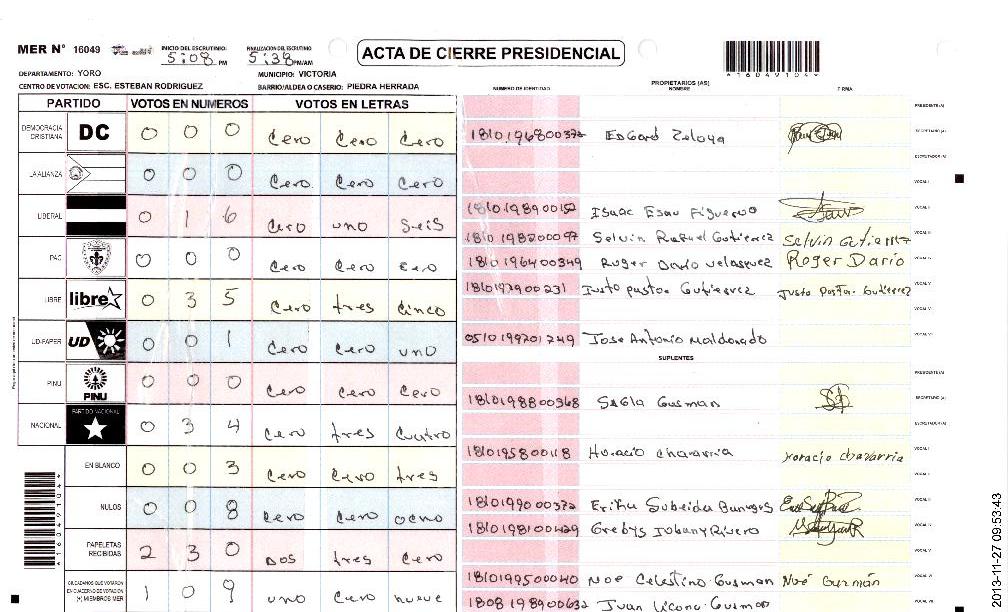 MER N° 16049
INICIO DEL ESCRUTINIO: 5:08 PM
FINALIZACION DEL ESCRUTINIO 5:38 PM/AM
ACTA DE CIERRE PRESIDENCIAL
*16049104*
DEPARTAMENTO: YORO
MUNICIPIO: VICTORIA
CENTRO DE VOTACION: ESC. ESTEBAN RODRIGUEZ
BARRIO/ALDEA O CASERIO: PIEDRA HERRADA
PARTIDO VOTOS EN NUMEROS VOTOS EN LETRAS
DEMOCRACIA CRISTIANA DC 0 0 0 Cero Cero Cero
LA ALIANZA 0 0 0 Cero Cero Cero
LIBERAL 0 1 6 Cero uno Seis
PAC 0 0 0 Cero Cero Cero
LIBRE libre 0 3 5 Cero tres Cinco
UD-FAPER UD 0 0 1 Cero Cero uno
PINU PINU 0 0 0 Cero Cero Cero
NACIONAL PARTIDO NACIONAL 0 3 4 Cero tres Cuatro
EN BLANCO 0 0 3 Cero Cero tres
NULOS 0 0 8 Cero Cero ocho
PAPELETAS RECIBIDAS 2 3 0 DOS tres Cero
CIUDADANOS QUE VOTARON EN CUADERNO DE VOTACION (+) MIEMBROS MER 1 0 9 uno Cero nueve
NUMERO DE IDENTIDAD PROPIETARIOS (AS) NOMBRE FIRMA
PRESIDENTE(A)
Edgard Zelaya SECRETARIO (A)
ESCRUTADOR (A)
VOCAL I
1810198900152 Isaac Esau Figueroa VOCAL II
Selvin Rafael Gutierrez Selvin Gutierrez VOCAL III
1810196400349 Roger Dario Velasquez Roger Dario VOCAL IV
1810197900231 Justo pastor Gutierrez Justo Pastor Gutierrez VOCAL V
VOCAL VI
0510199201249 Jose Antonio Maldonado VOCAL VII
SUPLENTES
PRESIDENTE(A)
1810198800368 Sagla Gusman SECRETARIO (A)
ESCRUTADOR(A)
1810195800118 Horacio chavarria Horacio chavarria VOCAL I
VOCAL II
1810199000372 Erika Subeida Banegas VOCAL III
1810198100429 Grebys Johany Rivero VOCAL IV
VOCAL V
1810199500040 Noe Celestino Gusman Noé Guzmán VOCAL VI
1808198900632 Juan Licona Gusman VOCAL VII
*16049104*
2013-11-27 09:53:43